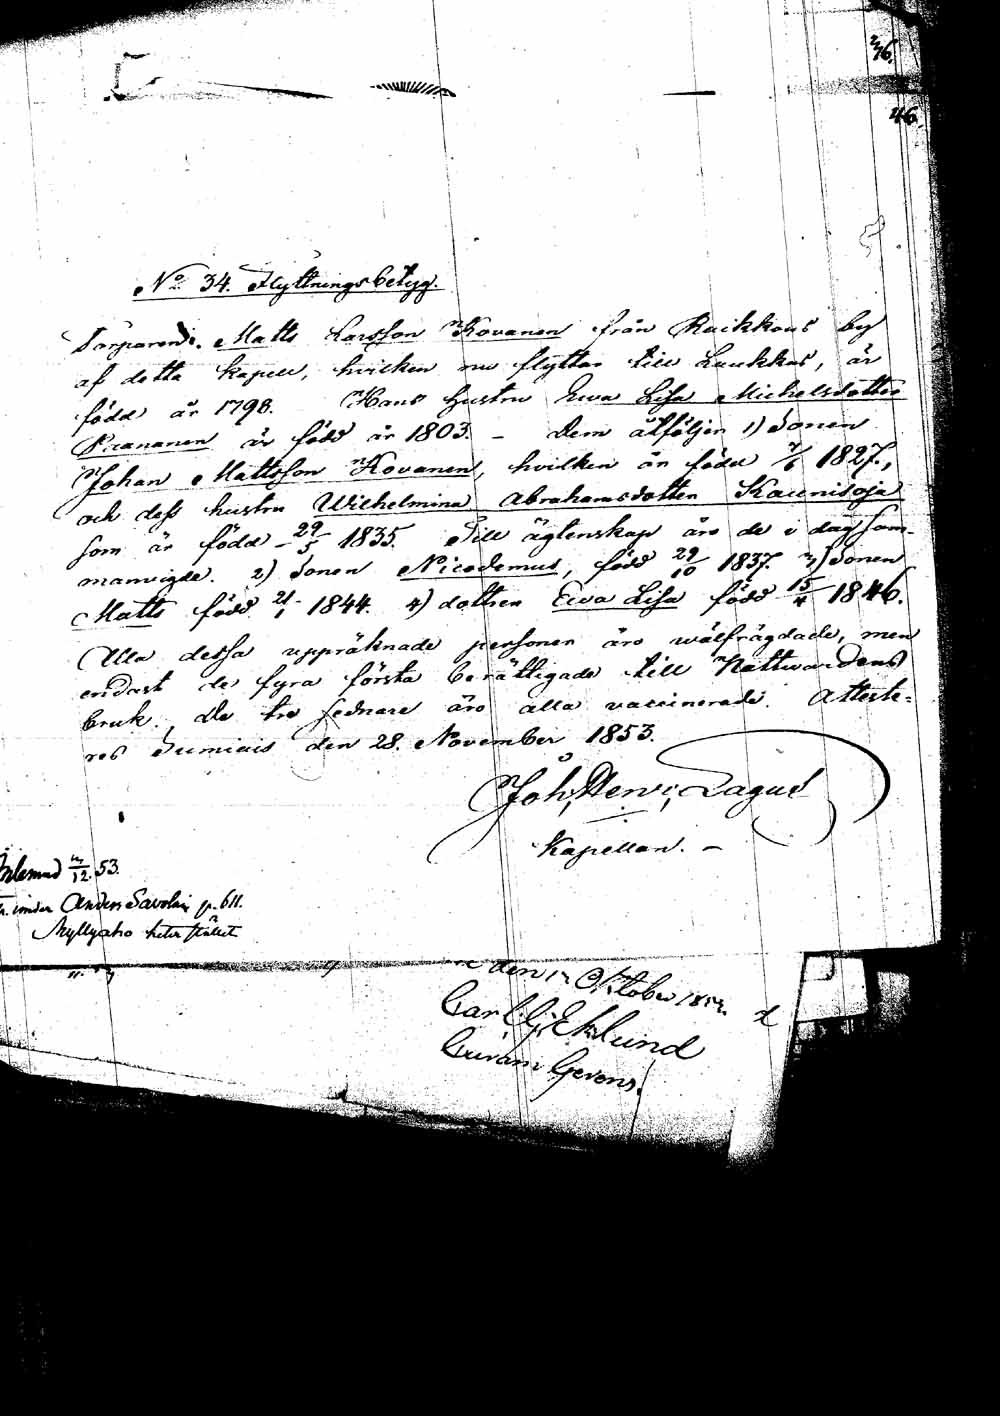 46.
No 34. Flyttningsbetyg.
Torparen Matts Larsson Kovanen från Raikkaus by
af detta kapell, hvilken nu flyttar till Laukkas, är
född år 1798. Hans hustru Ewa Lisa Michelsdotter
Paananen är född år 1803. – Dem åtföljer 1) Sonen
Johan Mattsson Kovanen, hvilken är född 7/6 1827,
och dess hustru Wilhelmina Abrahamsdotter Kaunisoja
som är född 29/5 1835. Till ägtenskap äro de i dag sam-
manvigde. 2) Sonen Nicodemus, född 29/10 1837. 3) Sonen
Matts född 21/1 1844. 4) dottren Ewa Lisa född 15/4 1846.
Alla dessa uppräknade personer äro wälfrägdade, men
endast de fyra första berättigade till Nattvardens
bruk. De tre sednare äro alla vaccinerade. Atteste-
res Sumiais den 28. November 1853.
Joh, Henr, Lagus
Kapellan. –
12. 53.
under Anders Savolain p. 611.
Myllyaho heter stället
den 17 Oktober
Carl G. Eklund